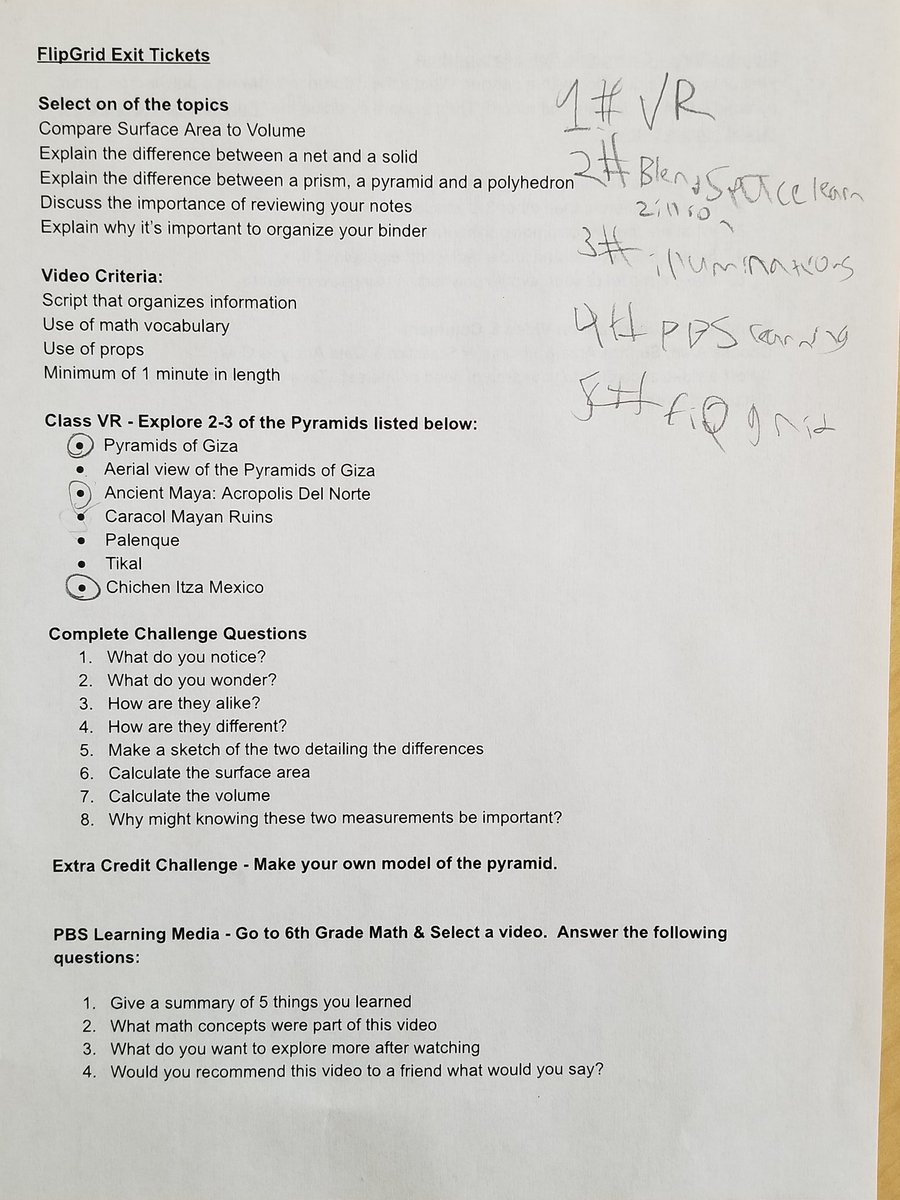 FlipGrid Exit Tickets
Select on of the topics
Compare Surface Area to Volume
Explain the difference between a net and a solid
Explain the difference between a prism, a pyramid and a polyhedron
Discuss the importance of reviewing your notes
Explain why it's important to organize your binder
1# VR
2# Blend Space learn
3#
4# PBS
5#
Video Criteria:
Script that organizes information
Use of math vocabulary
Use of props
Minimum of 1 minute in length
Class VR - Explore 2-3 of the Pyramids listed below:
• Pyramids of Giza
• Aerial view of the Pyramids of Giza
• Ancient Maya: Acropolis Del Norte
• Caracol Mayan Ruins
• Palenque
• Tikal
• Chichen Itza Mexico
Complete Challenge Questions
1. What do you notice?
2. What do you wonder?
3. How are they alike?
4. How are they different?
5. Make a sketch of the two detailing the differences
6. Calculate the surface area
7. Calculate the volume
8. Why might knowing these two measurements be important?
Extra Credit Challenge - Make your own model of the pyramid.
PBS Learning Media - Go to 6th Grade Math & Select a video. Answer the following
questions:
1. Give a summary of 5 things you learned
2. What math concepts were part of this video
3. What do you want to explore more after watching
4. Would you recommend this video to a friend what would you say?